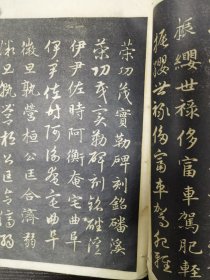 振纓世祿侈富車駕肥輕
振纓世祿侈富車駕肥輕
策功茂實勒碑刻銘磻溪
策功茂實勒碑刻銘磻溪
伊尹佐時阿衡奄宅曲阜
伊尹佐時阿衡奄宅曲阜
微旦孰營桓公匡合濟弱
微旦孰營桓公匡合濟弱